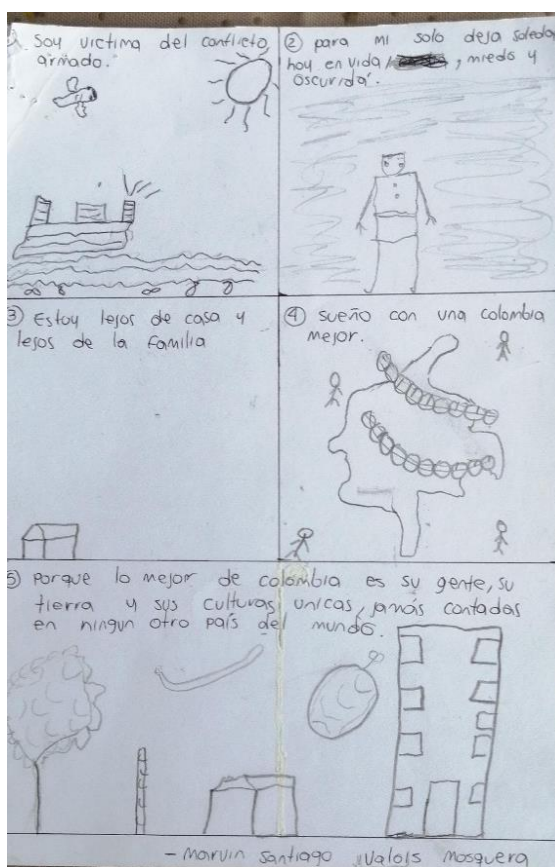 1 Soy victima del conflicto
armado.
② para mi solo deja soledad
hoy en vida, miedo y
oscurida'.
③ Estoy lejos de casa y
lejos de la familia
④ sueño con una colombia
mejor.
5) porque lo mejor de colombia es su gente, su
tierra y sus culturas unicas, jamás contadas
en ningun otro país del mundo.
- Marvin Santiago Valois Mosquera